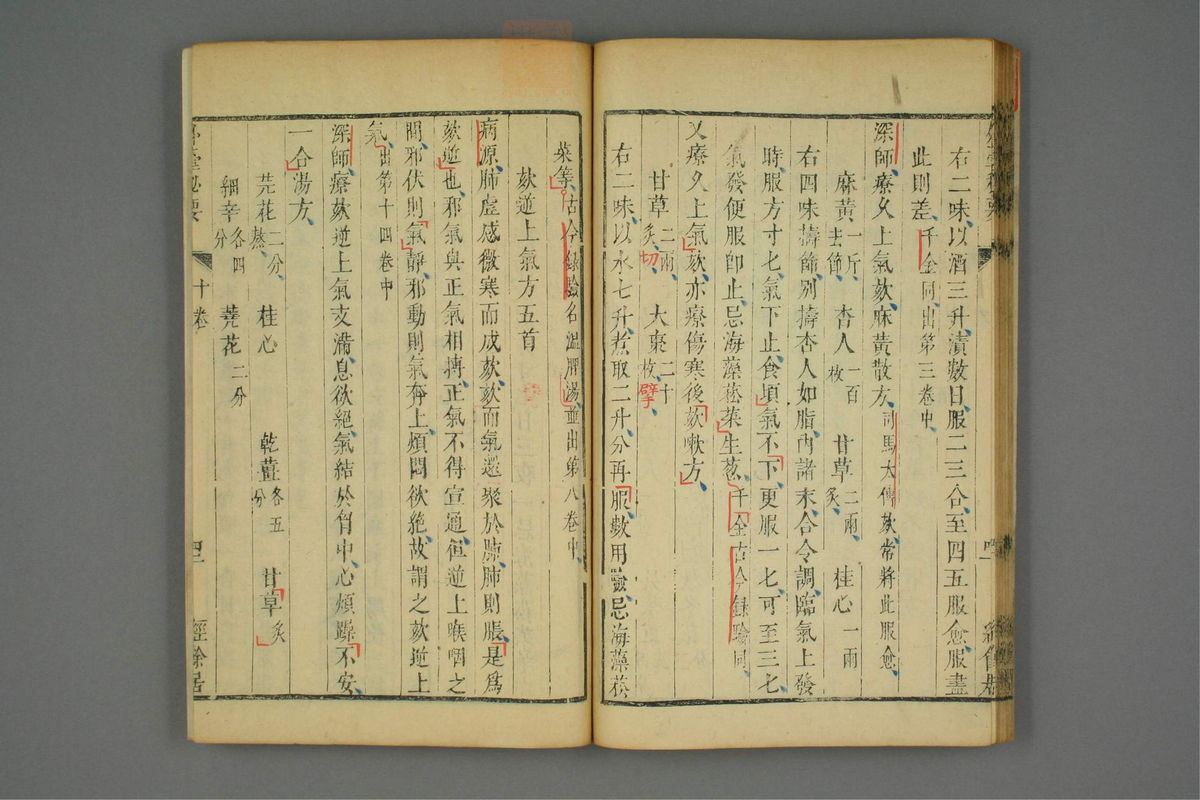 右二味以酒三升漬數日服二三合至四五服愈服盡
此則差千金同出第三卷中
深師療久上氣欬麻黃散方司馬太傅欬常將此服愈
麻黃一斤去節 杏人一百枚 甘草二兩炙 桂心一兩
右四味擣篩別擣杏人如脂內諸末合令調臨氣上發
時服方寸七氣下止食頃氣不下更服一七可至三七
氣發便服卽止忌海藻菘菜生葱千金古今錄驗同
又療久上氣欬亦療傷寒後欬嗽方
甘草二兩炙切 大棗二十枚擘
右二味以水七升煮取二升分再服數用驗忌海藻菘
菜等古今錄驗名溫脾湯並出第八卷中
欬逆上氣方五首
病源肺虛感微寒而成欬欬而氣還聚於肺肺則脹是爲
欬逆也邪氣與正氣相摶正氣不得宣通但逆上喉咽之
間邪伏則氣靜邪動則氣奔上煩悶欲絕故謂之欬逆上
氣出第十四卷中
深師療欬逆上氣支滿息欲絕氣結於胷中心煩躁不安
一合湯方
芫花二分熬 桂心 乾薑各五分 甘草炙
細辛各四分 蕘花二分
十卷 四二 經餘居